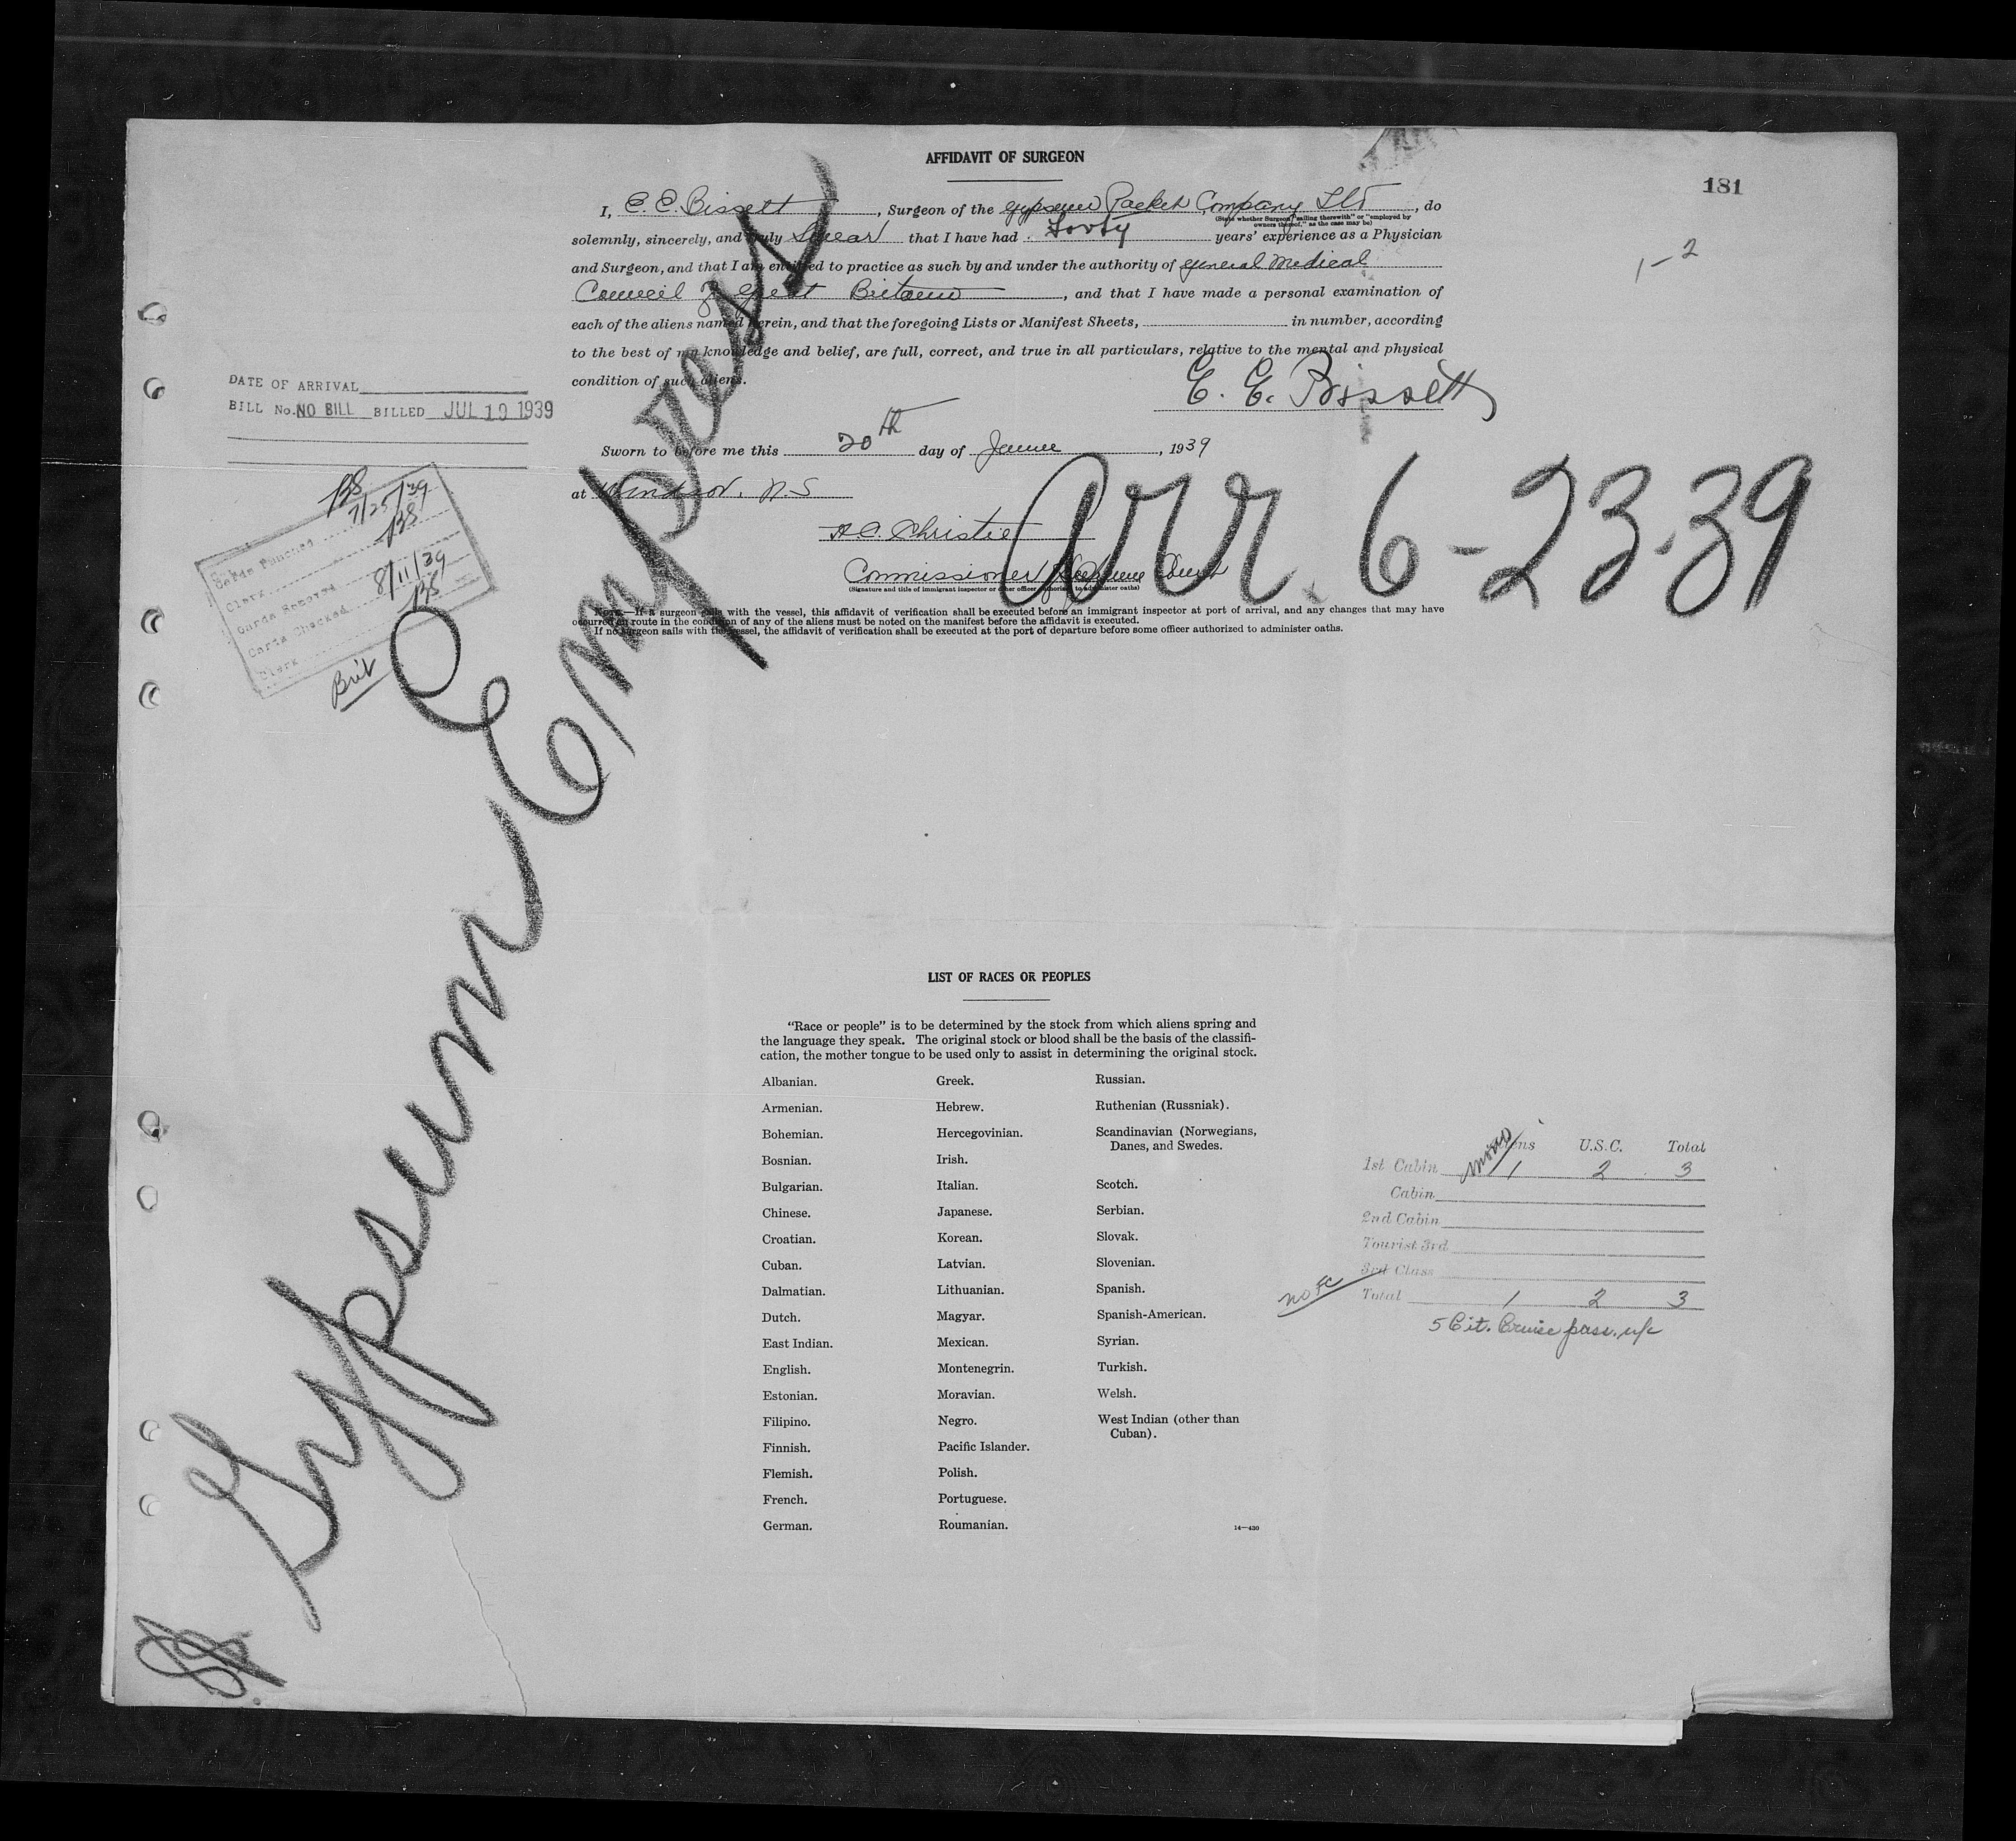 AFFIDAVIT OF SURGEON
181
1-2
I, E. E. Bissett, Surgeon of the Gypsum Packet Company Ltd, do
(State whether Surgeon "sailing therewith" or "employed by
owners thereof," as the case may be)
solemnly, sincerely, and truly Swear that I have had Forty years' experience as a Physician
and Surgeon, and that I am entitled to practice as such by and under the authority of General Medical
Council of Great Britain, and that I have made a personal examination of
each of the aliens named herein, and that the foregoing Lists or Manifest Sheets, in number, according
to the best of my knowledge and belief, are full, correct, and true in all particulars, relative to the mental and physical
condition of such aliens.
E. E. Bissett
DATE OF ARRIVAL
BILL No. NO BILL BILLED JUL 10 1939
Sworn to before me this 20th day of June, 1939
at Windsor, N.S
H.C. Christie
Commissioner Supreme Court
(Signature and title of immigrant inspector or other officer authorized to administer oaths)
NOTE.—If a surgeon sails with the vessel, this affidavit of verification shall be executed before an immigrant inspector at port of arrival, and any changes that may have
occurred en route in the condition of any of the aliens must be noted on the manifest before the affidavit is executed.
If no surgeon sails with the vessel, the affidavit of verification shall be executed at the port of departure before some officer authorized to administer oaths.
Arr. 6-23-39
BS
Cards Punched 7/25/39
Clerk BS
Cards Sorted
Cards Checked 8/11/39
Clerk BS
Brit
SS Gypsum Empress
LIST OF RACES OR PEOPLES
"Race or people" is to be determined by the stock from which aliens spring and
the language they speak. The original stock or blood shall be the basis of the classifi-
cation, the mother tongue to be used only to assist in determining the original stock.
Albanian.
Armenian.
Bohemian.
Bosnian.
Bulgarian.
Chinese.
Croatian.
Cuban.
Dalmatian.
Dutch.
East Indian.
English.
Estonian.
Filipino.
Finnish.
Flemish.
French.
German.
Greek.
Hebrew.
Hercegovinian.
Irish.
Italian.
Japanese.
Korean.
Latvian.
Lithuanian.
Magyar.
Mexican.
Montenegrin.
Moravian.
Negro.
Pacific Islander.
Polish.
Portuguese.
Roumanian.
Russian.
Ruthenian (Russniak).
Scandinavian (Norwegians,
Danes, and Swedes.
Scotch.
Serbian.
Slovak.
Slovenian.
Spanish.
Spanish-American.
Syrian.
Turkish.
Welsh.
West Indian (other than
Cuban).
14—430
U.S.C. Total
1st Cabin 1 2 3
Cabin
2nd Cabin
Tourist 3rd
3rd Class
Total 1 2 3
5 Cit. Cruise pass. n/c